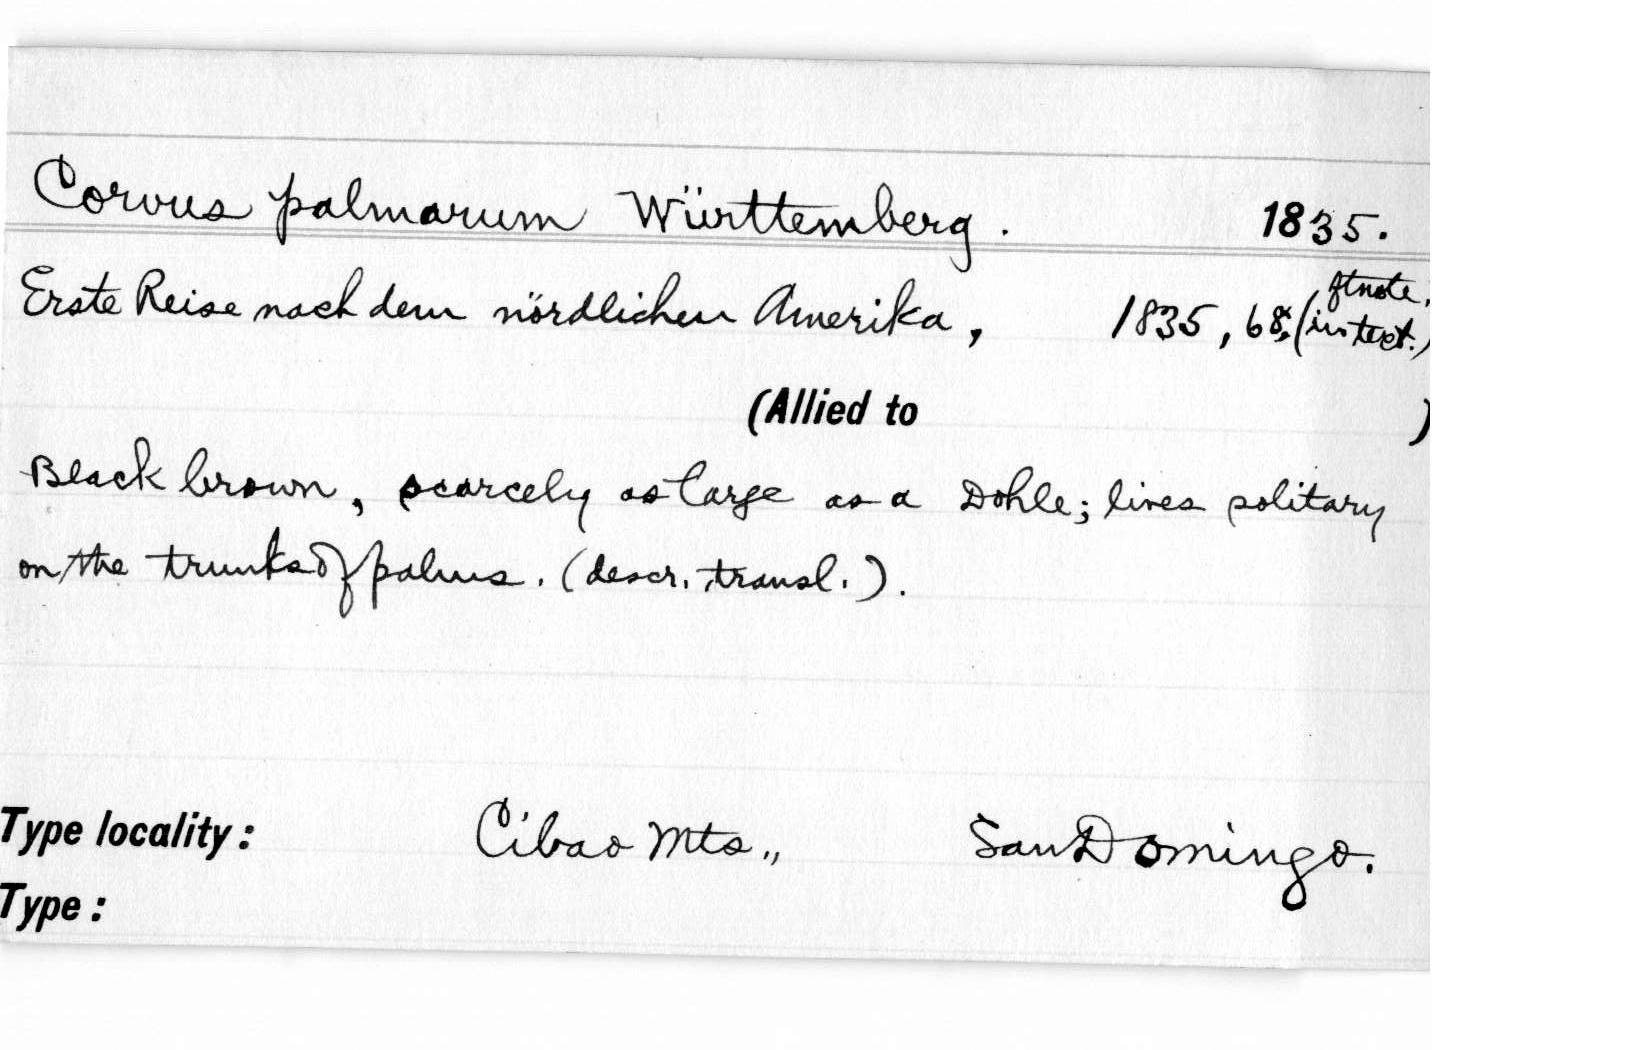 Corvus palmarum Württemberg. 1835.
Erste Reise nach dem nördlichen Amerika, 1835, 68, (in text.) ftnote,
(Allied to )
Black brown, scarcely as large as a Dohle; lives solitary
on the trunks of palms. (descr. transl.).
Type locality: Cibao Mts., San Domingo.
Type: